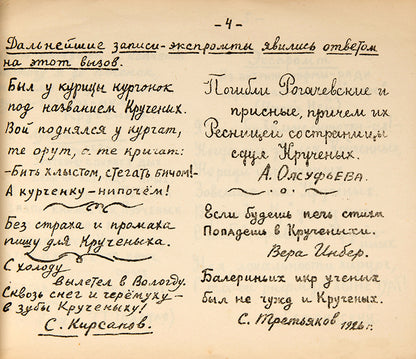 – 4 –
Дальнейшие записи-экспромты явились ответом
на этот вызов.
Был у курицы курчонок
под названием Крученых.
Вой поднялся у курчат,
те орут, а те кричат:
–Бить хлыстом, стегать бичом!–
А курченку–нипочём!
Без страха и промаха
пишу для Крученыха.
С холоду
вылетел в Вологду.
Сквозь снег и черёмуху –
в зубы Крученыху!
С. Кирсанов.
Погибли Рогачевские и
присные, причем их
Ресницей со страницы
сдул Крученых.
А. Олсуфьева.
Если будешь печь стихи
Попадешь в Крученихи.
Вера Инбер.
Балериньих икр ученых
был не чужд и Крученых.
С. Третьяков 1926 г.